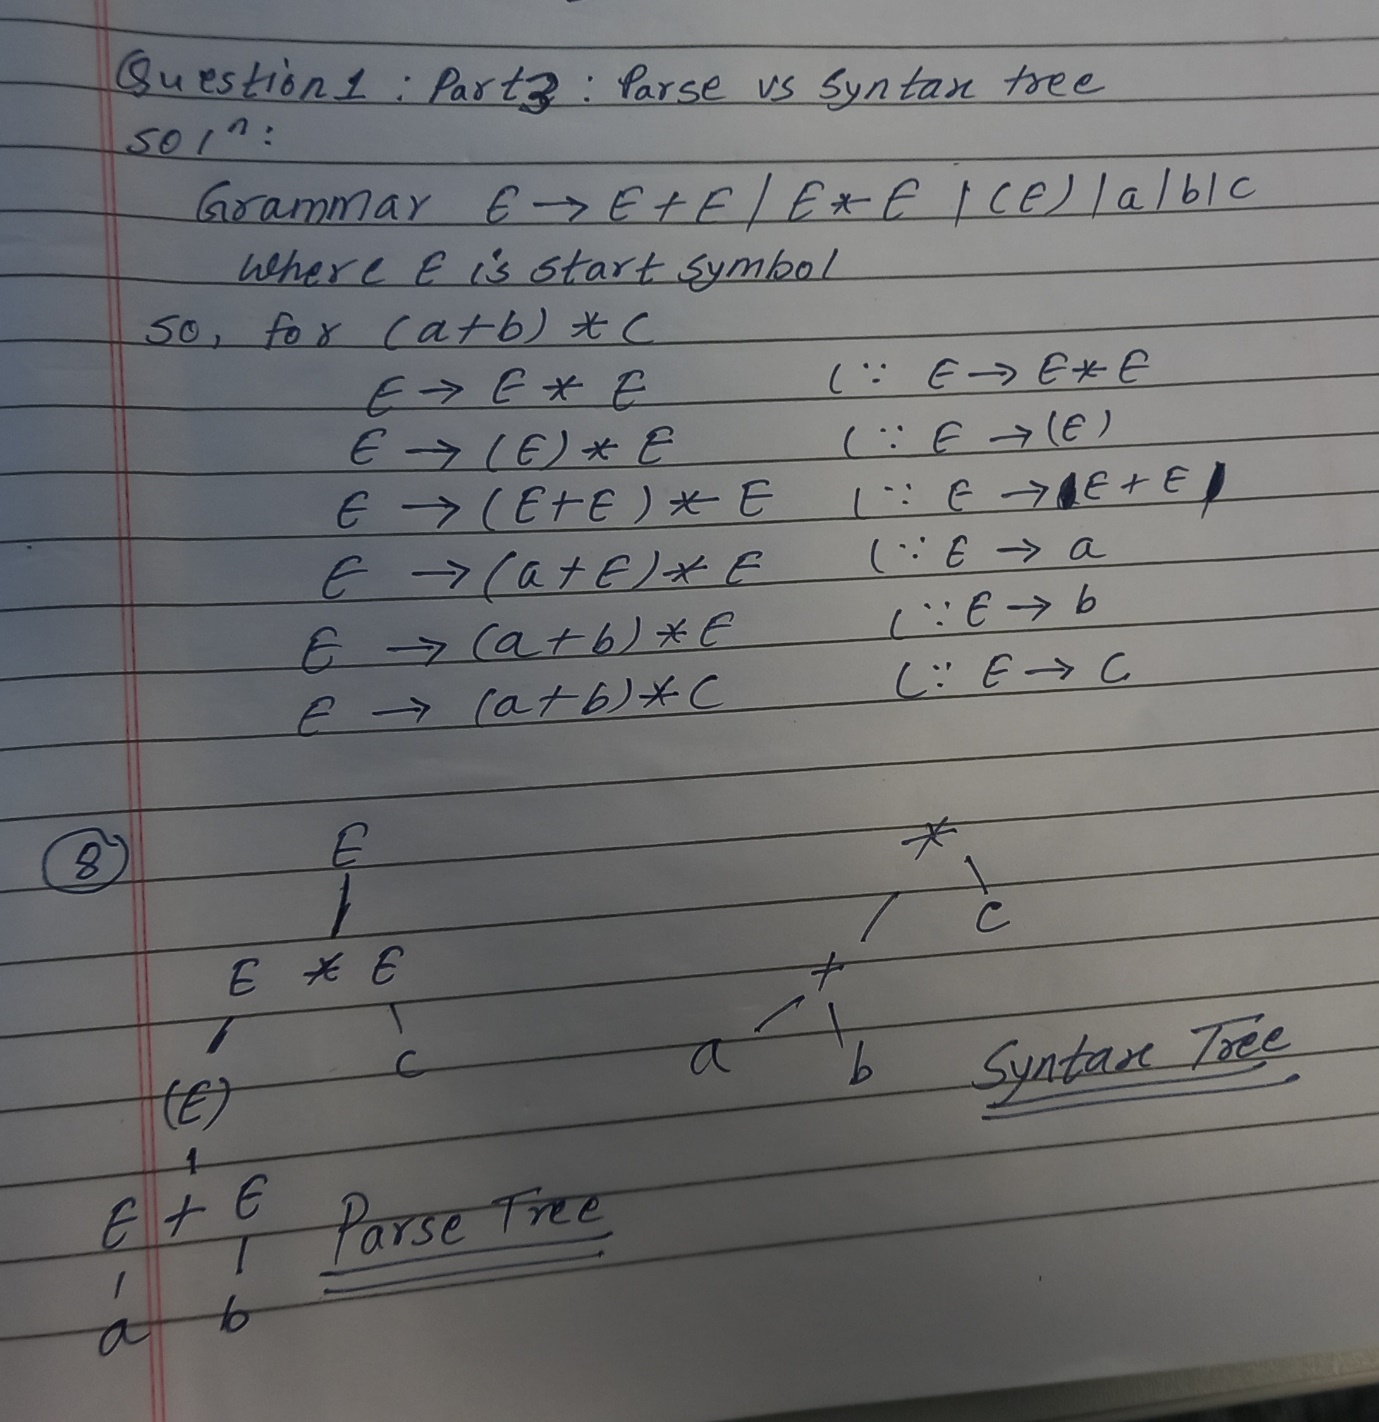 Question 1 : Part 3 : Parse vs Syntax tree
Solⁿ:
Grammar E → E + E / E * E | (E) | a | b | c
where E is start symbol
So, for (a+b) * c
E → E * E (∵ E → E * E
E → (E) * E (∵ E → (E)
E → (E+E) * E (∵ E → E + E
E → (a+E) * E (∵ E → a
E → (a+b) * E (∵ E → b
E → (a+b) * C (∵ E → C
8
E
E * E
(E) c
E + E
a b
Parse Tree
*
+ c
a b
Syntax Tree